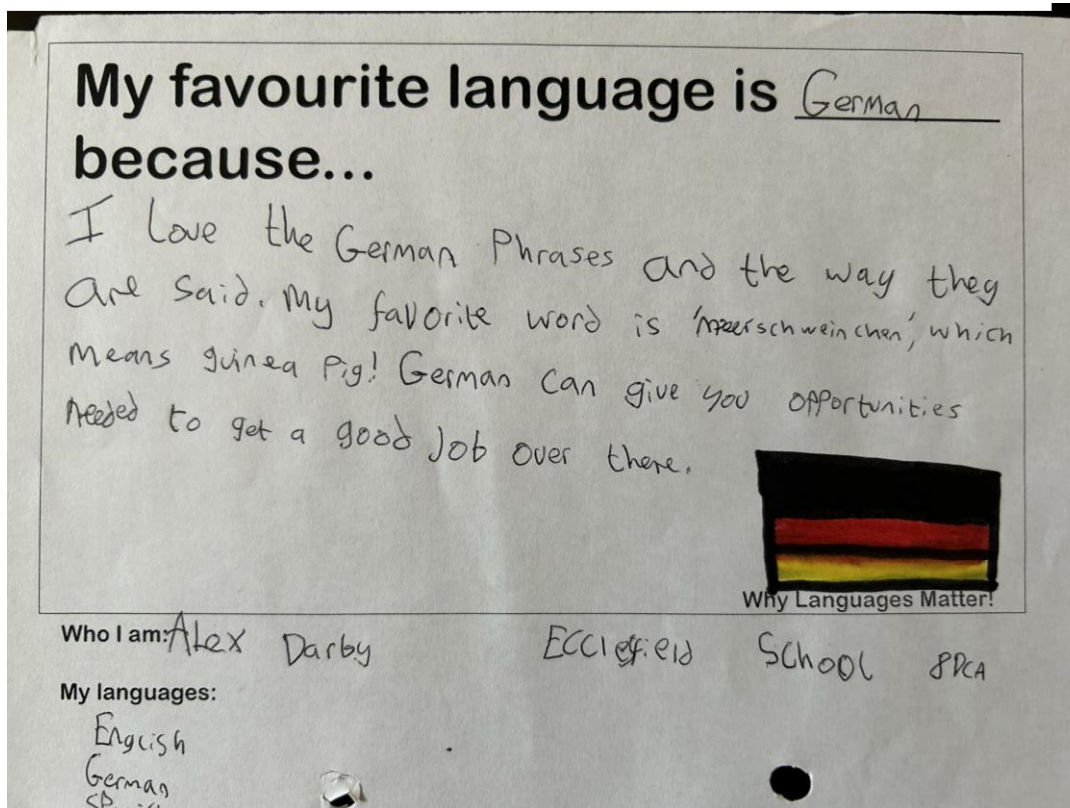 My favourite language is German
because...
I Love the German Phrases and the way they
are Said. My favorite word is 'meerschweinchen', which
means guinea Pig! German can give you opportunities
needed to get a good Job over there.
Why Languages Matter!
Who I am: Alex Darby Ecclesfield School
My languages:
English
German